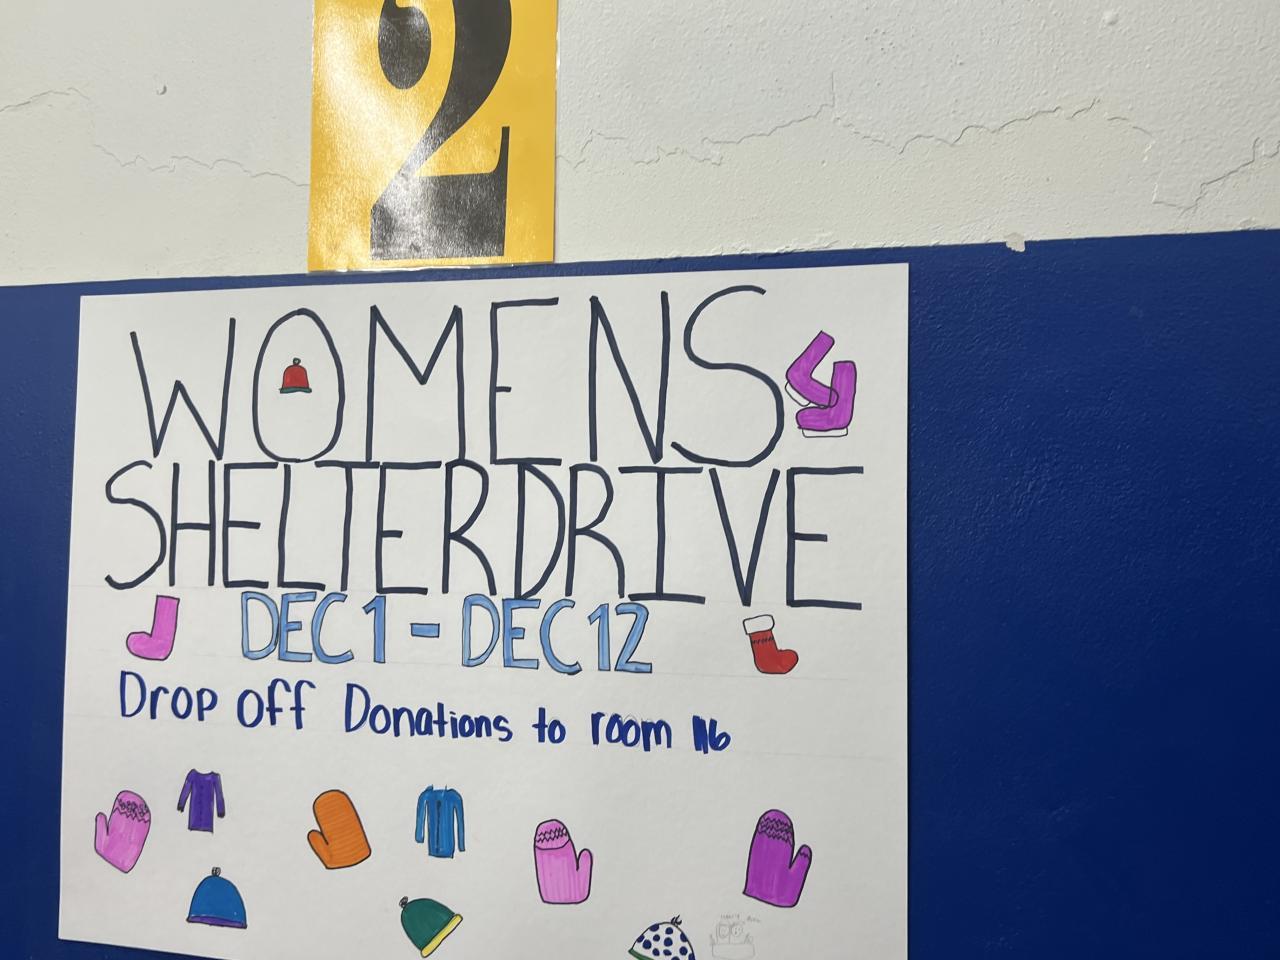 2
WOMENS
SHELTER DRIVE
DEC 1 - DEC 12
Drop off Donations to room 116